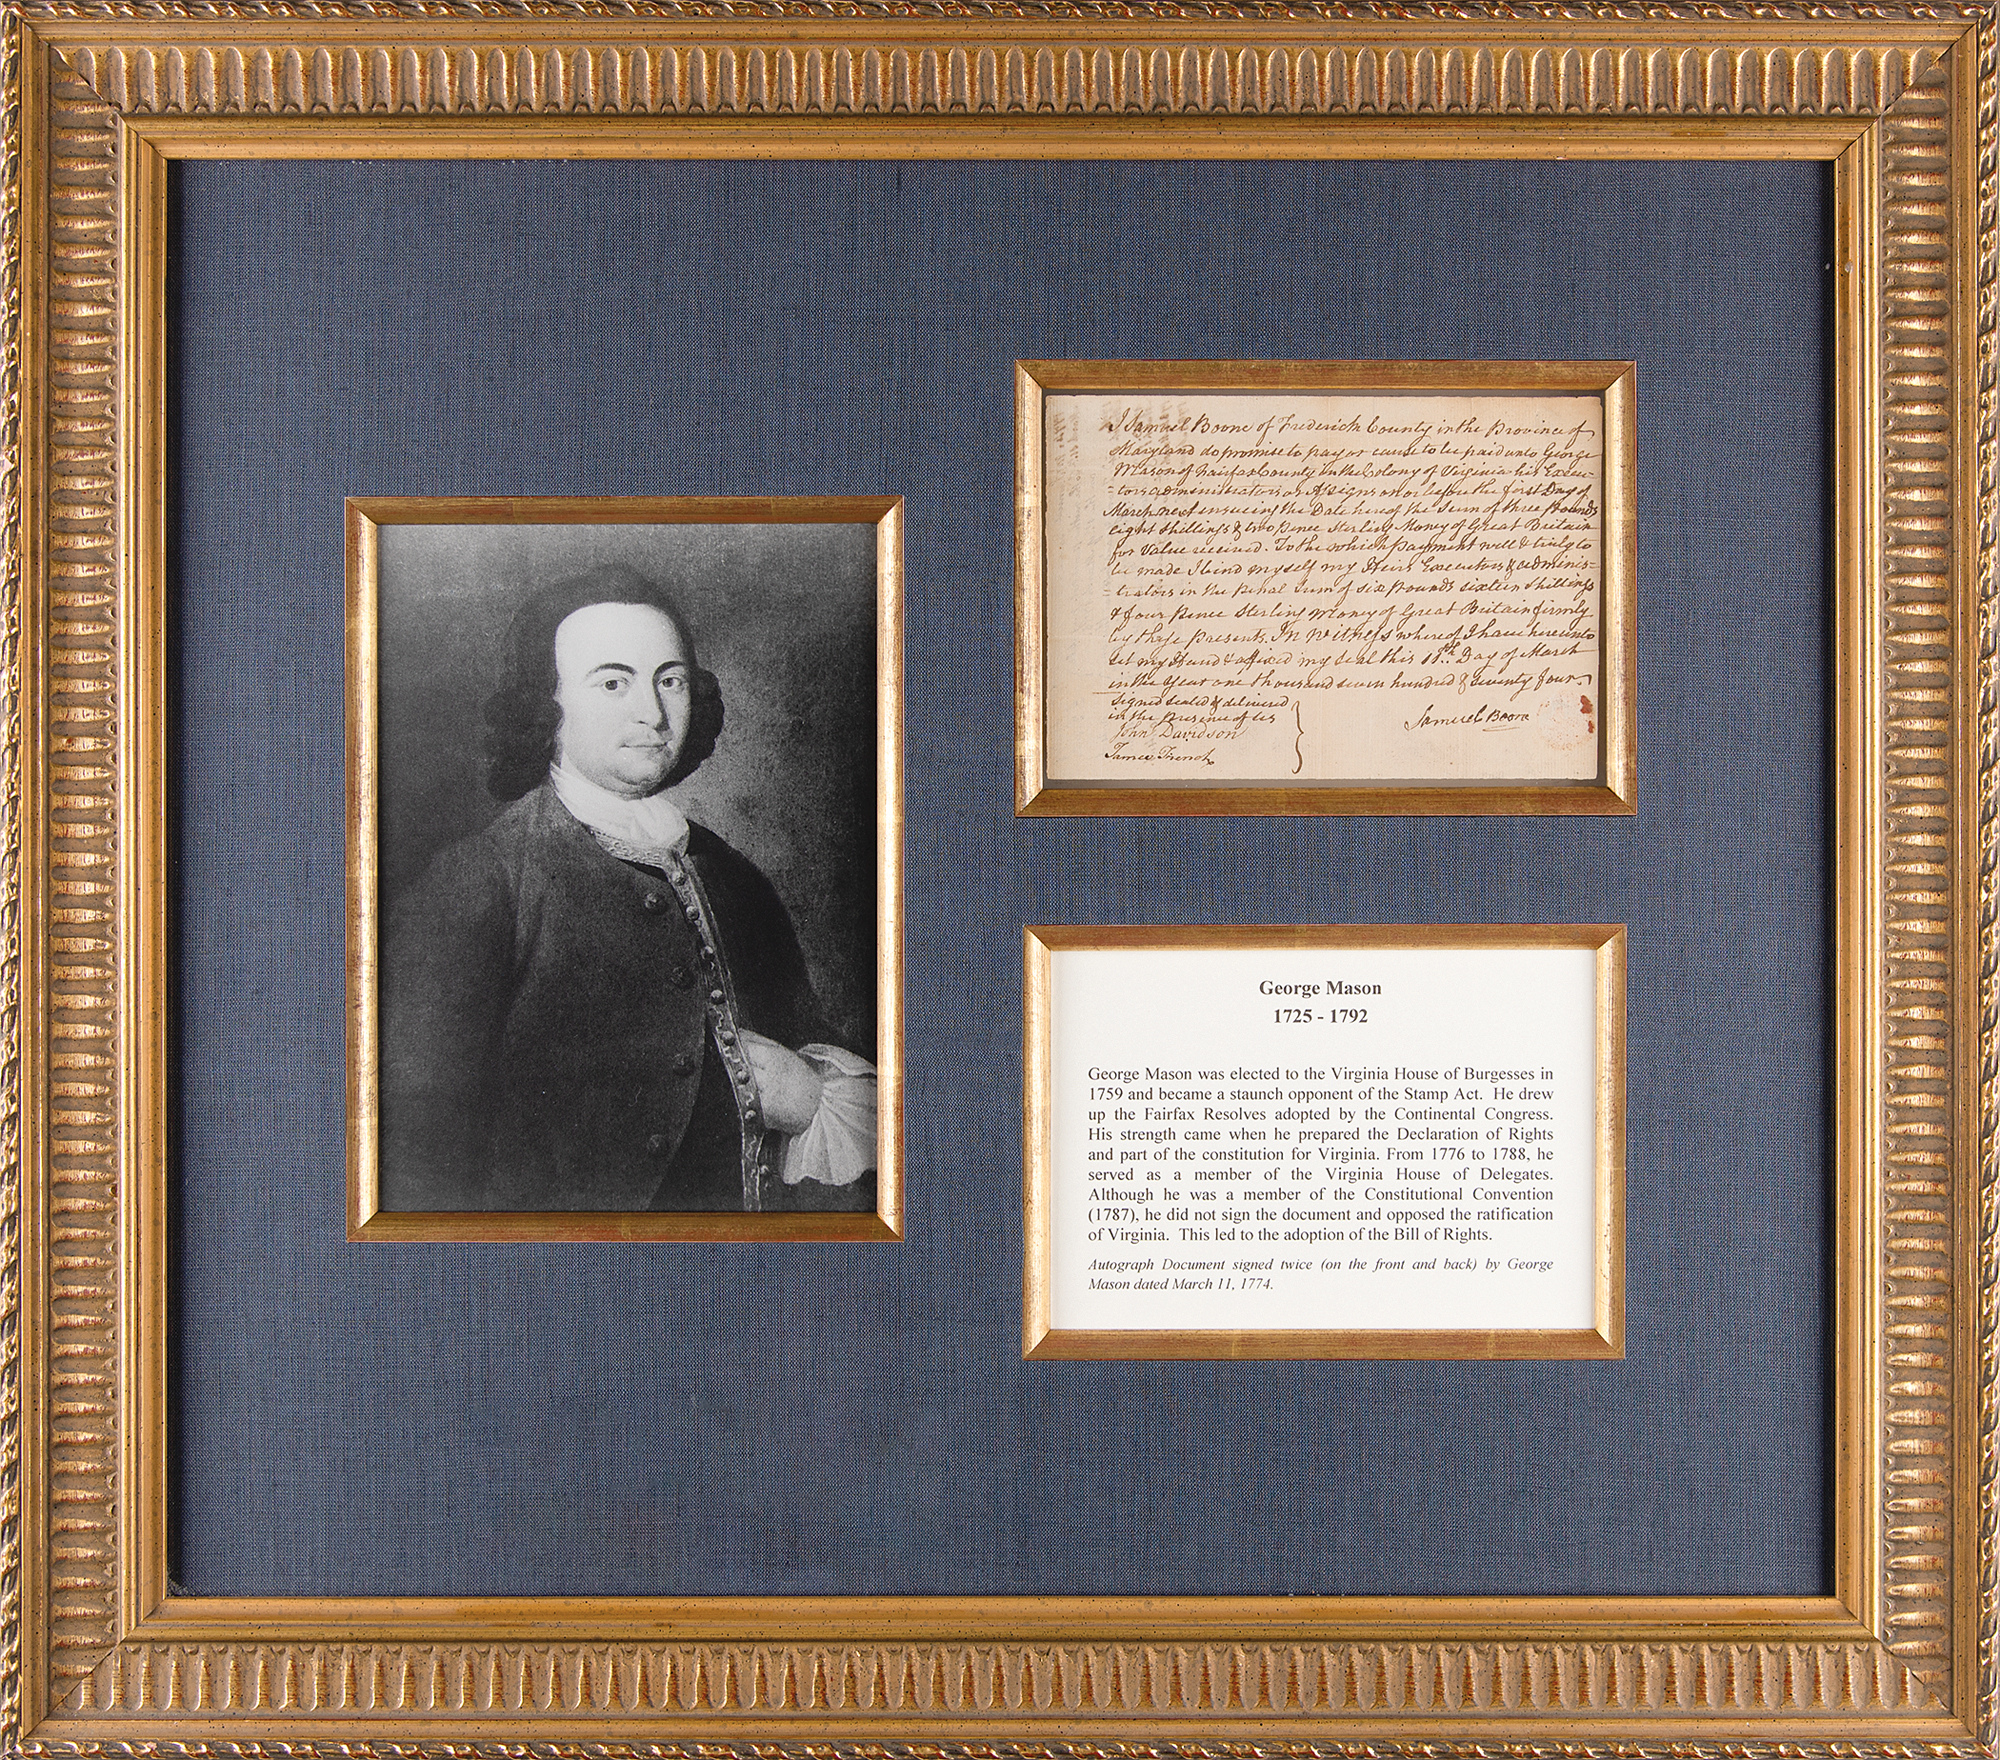 I Samuel Boone of Frederick County in the Province of
Maryland do promise to pay or cause to be paid unto George
Mason of Fairfax County in the Colony of Virginia his Execu-
-tors administrators or Assigns on or before the first Day of
March next ensueing the Date hereof the Sum of three Pounds
eight Shillings & two Pence Sterling Money of Great Britain
for Value received. To the which payment well & truly to
be made I bind myself my Heirs Executors & adminis-
-trators in the Penal Sum of six Pounds sixteen Shillings
& four Pence Sterling Money of Great Britain firmly
by these presents. In Witness whereof I have hereunto
set my Hand & affixed my Seal this 11th. Day of March
in the Year one thousand seven hundred & seventy four
Signed sealed & delivered
in the Presence of us
Samuel Boone
John Davidson
James French
George Mason
1725 - 1792
George Mason was elected to the Virginia House of Burgesses in
1759 and became a staunch opponent of the Stamp Act. He drew
up the Fairfax Resolves adopted by the Continental Congress.
His strength came when he prepared the Declaration of Rights
and part of the constitution for Virginia. From 1776 to 1788, he
served as a member of the Virginia House of Delegates.
Although he was a member of the Constitutional Convention
(1787), he did not sign the document and opposed the ratification
of Virginia. This led to the adoption of the Bill of Rights.
Autograph Document signed twice (on the front and back) by George
Mason dated March 11, 1774.